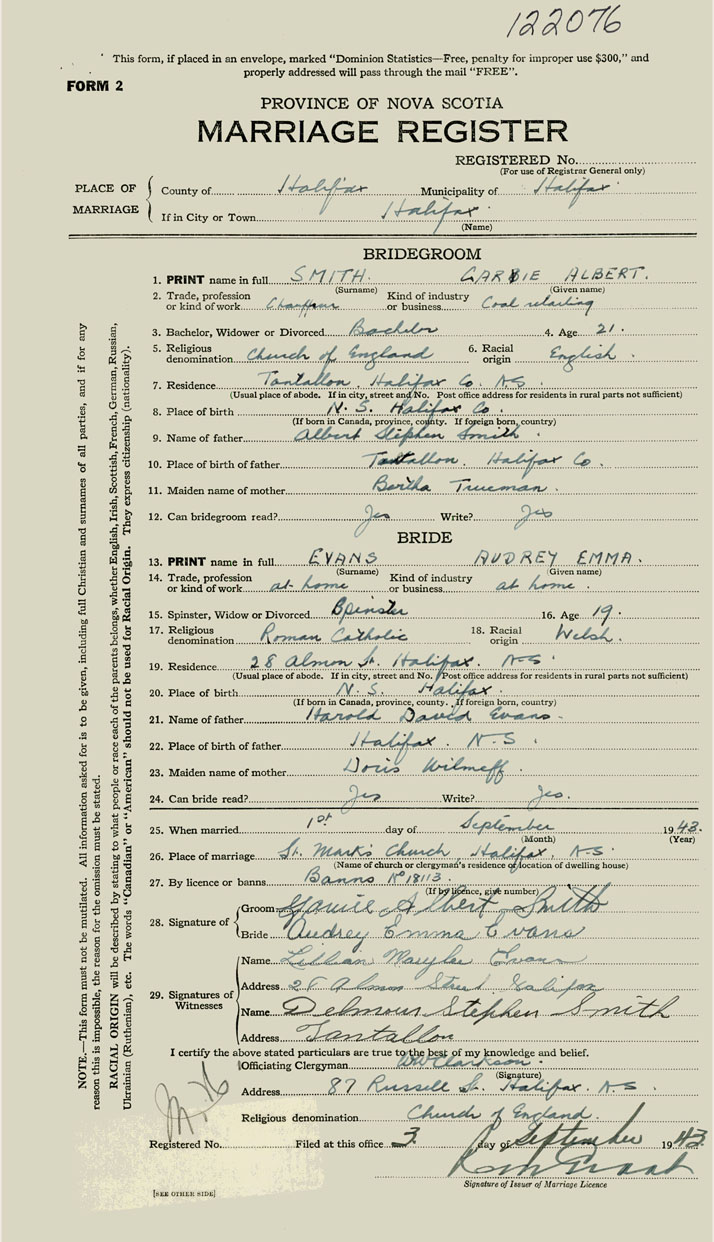 122076
This form, if placed in an envelope, marked "Dominion Statistics—Free, penalty for improper use $300," and
properly addressed will pass through the mail "FREE".
FORM 2
PROVINCE OF NOVA SCOTIA
MARRIAGE REGISTER
REGISTERED No.
(For use of Registrar General only)
PLACE OF MARRIAGE
County of Halifax Municipality of Halifax
If in City or Town Halifax
(Name)
BRIDEGROOM
1. PRINT name in full SMITH. ALBERT.
(Surname) (Given name)
2. Trade, profession or kind of work Chauffeur Kind of industry or business Coal retailing
3. Bachelor, Widower or Divorced Bachelor 4. Age 21.
5. Religious denomination Church of England 6. Racial origin English.
7. Residence Tantallon. Halifax Co. N.S
(Usual place of abode. If in city, street and No. Post office address for residents in rural parts not sufficient)
8. Place of birth N.S. Halifax Co.
(If born in Canada, province, county. If foreign born, country)
9. Name of father Albert Stephen Smith.
10. Place of birth of father Tantallon. Halifax Co.
11. Maiden name of mother Bertha Trueman.
12. Can bridegroom read? Yes Write? Yes
BRIDE
13. PRINT name in full EVANS AUDREY EMMA.
(Surname) (Given name)
14. Trade, profession or kind of work at home Kind of industry or business at home.
15. Spinster, Widow or Divorced Spinster 16. Age 19.
17. Religious denomination Roman Catholic 18. Racial origin Welsh.
19. Residence 28 Almon St. Halifax. N-S
(Usual place of abode. If in city, street and No. Post office address for residents in rural parts not sufficient)
20. Place of birth N.S. Halifax.
(If born in Canada, province, county. If foreign born, country)
21. Name of father Harold David Evans.
22. Place of birth of father Halifax. N.S.
23. Maiden name of mother Doris
24. Can bride read? Yes Write? Yes.
25. When married 1st day of September 1943.
(Month) (Year)
26. Place of marriage St. Mark's Church, Halifax, N-S
(Name of church or clergyman's residence or location of dwelling house)
27. By licence or banns Banns No 18113.
(If by licence, give number)
28. Signature of
Groom Albert Smith
Bride Audrey Emma Evans
29. Signatures of Witnesses
Name Lillian Evans
Address 28 Almon Street Halifax
Name Stephen Smith
Address Tantallon
I certify the above stated particulars are true to the best of my knowledge and belief.
Officiating Clergyman Clarkson.
(Signature)
Address 87 Russell St. Halifax. N.S
Religious denomination Church of England.
Registered No. Filed at this office 3 day of September 1943.
Signature of Issuer of Marriage Licence
[SEE OTHER SIDE]
NOTE.—This form must not be mutilated. All information asked for is to be given, including full Christian and surnames of all parties, and if for any
reason this is impossible, the reason for the omission must be stated.
RACIAL ORIGIN will be described by stating to what people or race each of the parents belongs, whether English, Irish, Scottish, French, German, Russian,
Ukrainian (Ruthenian), etc. The words "Canadian" or "American" should not be used for Racial Origin. They express citizenship (nationality).